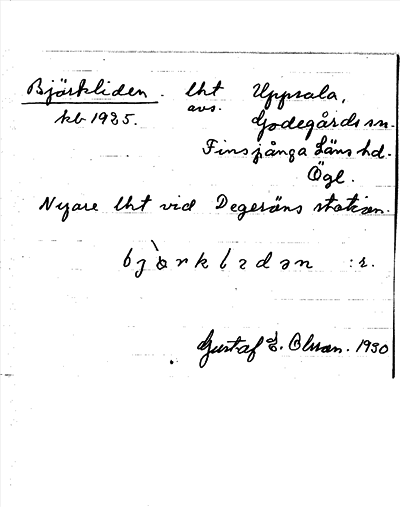 Björkliden. lht Uppsala,
kb 1925. avs. Godegårds sn.
Finspånga Läns hd.
Ögl.
Nyare lht vid Degeröns station.
:r.
Gustaf E. Olsson. 1930